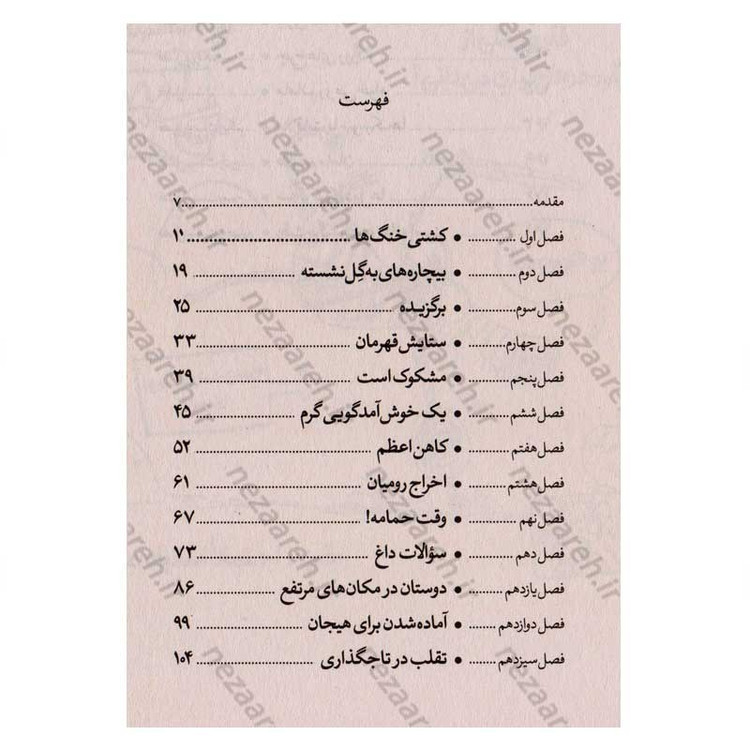 فهرست
مقدمه........................................................................۷
فصل اول ............ • کشتی خنگ‌ها ........................................ ۱۱
فصل دوم ............ • بیچاره‌های به گِل نشسته ........................ ۱۹
فصل سوم ............ • برگزیده ................................................ ۲۵
فصل چهارم.......... • ستایش قهرمان ......................................۳۳
فصل پنجم............ • مشکوک است ...................................... ۳۹
فصل ششم ........... • یک خوش‌آمدگویی گرم ........................ ۴۵
فصل هفتم ........... • کاهن اعظم .......................................... ۵۲
فصل هشتم........... • اخراج رومیان ........................................ ۶۱
فصل نهم ............. • وقت حمامه! ........................................ ۶۷
فصل دهم ............ • سؤالات داغ ........................................ ۷۳
فصل یازدهم ........ • دوستان در مکان‌های مرتفع .................. ۸۶
فصل دوازدهم ....... • آماده شدن برای هیجان ...................... ۹۹
فصل سیزدهم ........ • تقلب در تاجگذاری ............................ ۱۰۴
nezaareh.ir